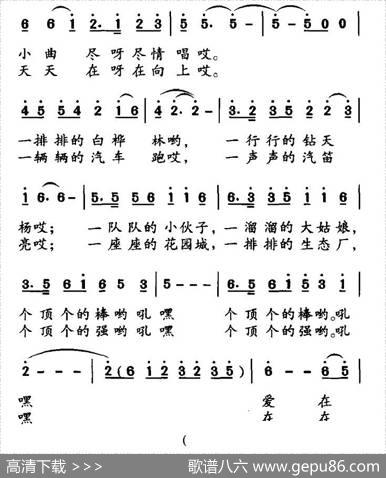 6 6 1 2. 1 2 3 | 5 5. 5 - | 5 5 5 0 0
小曲 尽呀尽情唱哎。
天天 在呀在向上哎。
4 5 5 4 2 1 6 | 4 2. 2 - | 3. 2 3 5 2 2 3
一排排的白桦 林哟， 一行行的钻天
一辆辆的汽车 跑哎， 一声声的汽笛
1 6. 6 - | 5. 5 5 6 1 2 | 6. 3 3 5 1 5
杨哎； 一队队的小伙子， 一溜溜的大姑娘，
亮哎； 一座座的花园城， 一排排的生态厂，
3. 5 6 1 6 5 3 | 5 - - - | 3. 5 6 1 5 3 1
个顶个的棒哟吼嘿 个顶个的棒哟。吼
个顶个的强哟吼嘿 个顶个的强哟。吼
2 - - - | 2 ( 6 1 2 3 2 3 5 ) | 6 - - 6 5
嘿 爱在
嘿 在在
(
高清下载 >>>
歌谱八六 www.gepu86.com